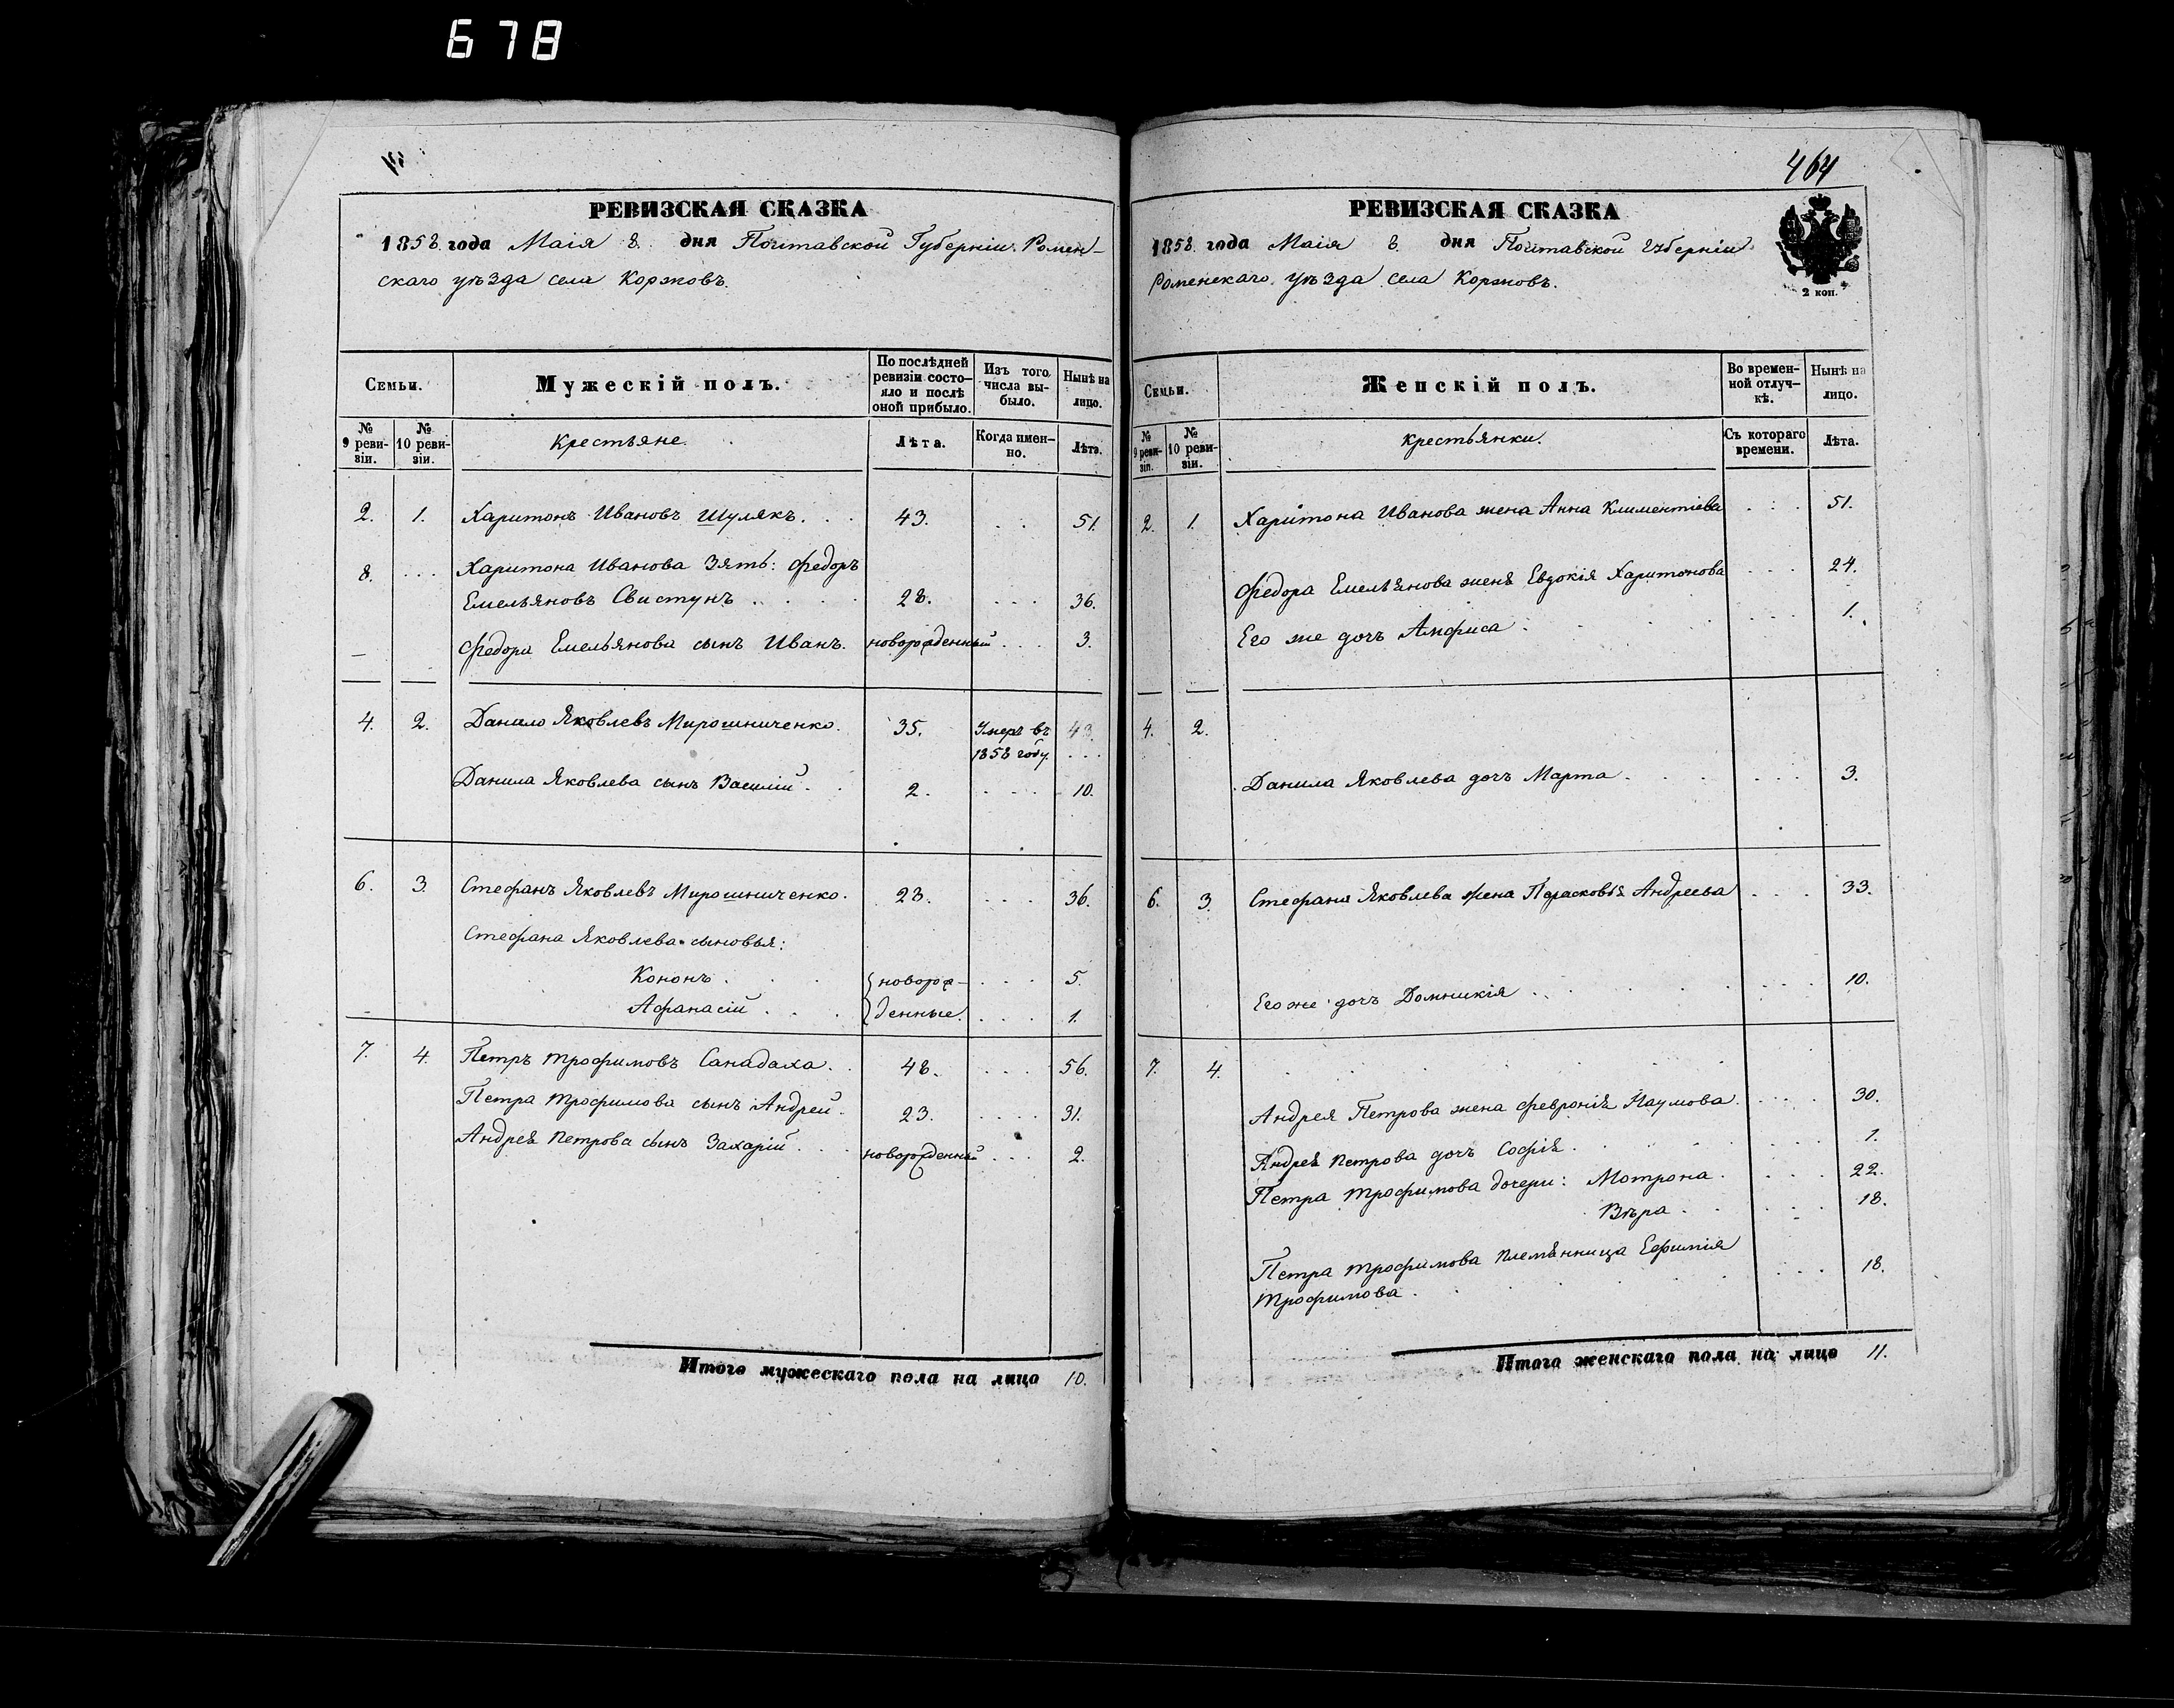 678
РЕВИЗСКАЯ СКАЗКА
1858 года Маія 8 дня Полтавской Губерніи Ромен-
скаго уѣзда села Коржовъ.
Семьи.
Мужескій полъ.
По послѣдней ревизіи состо-яло и послѣ оной прибыло.
Изъ того числа вы-было.
Нынѣ на лицо.
№ 9 реви-зіи.
№ 10 реви-зіи.
Крестьяне.
Лѣта.
Когда имен-но.
Лѣта.
2. 1. Харитонъ Ивановъ Шулякъ. . . 43. . . 51.
8. . . . Харитона Иванова Зять: Федоръ
Емельяновъ Свистунъ . . . . 28. . . . 36.
— Федора Емельянова сынъ Иванъ. новорожденный . . . 3.
4. 2. Данило Яковлевъ Мирошниченко. 35. Умеръ въ 43.
1858 году. . . .
Данила Яковлева сынъ Василій . . 2. . . . 10.
6. 3. Стефанъ Яковлевъ Мирошниченко. 28. . . . 36.
Стефана Яковлева сыновья:
Кононъ . . . новорож- . . . 5.
Афанасій . . . денные. . . . 1.
7. 4. Петръ Трофимовъ Санадаха. . 48. . . . 56.
Петра Трофимова сынъ Андрей. 23. . . . 31.
Андрея Петрова сынъ Захарій . . . новорожденный . . . 2.
Итого мужескаго пола на лицо 10.
464
РЕВИЗСКАЯ СКАЗКА
1858 года Маія 8 дня Полтавской Губерніи
Роменскаго уѣзда села Коржовъ.
2 коп.
Семьи.
Женскій полъ.
Во времен-ной отлуч-кѣ.
Нынѣ на лицо.
№ 9 реви-зіи.
№ 10 реви-зіи.
Крестьянки.
Съ котораго времени.
Лѣта.
2. 1. Харитона Иванова жена Анна Климентіева . . . 51.
Федора Емельянова жена Евдокія Харитонова . . . 24.
Его же дочь Анфиса . . . . 1.
4. 2.
Данила Яковлева дочь Марта . . . . 3.
6. 3. Стефана Яковлева жена Парасковія Андреева . . . 33.
Его же дочь Домникія . . . . 10.
7. 4.
Андрея Петрова жена Февронія Наумова . . . 30.
Андрея Петрова дочь Софія . . . . 1.
Петра Трофимова дочери: Мотрона . . . . 22.
Вѣра . . . . 18.
Петра Трофимова племянница Ефимія . . . 18.
Трофимова . .
Итого женскаго пола на лицо 11.